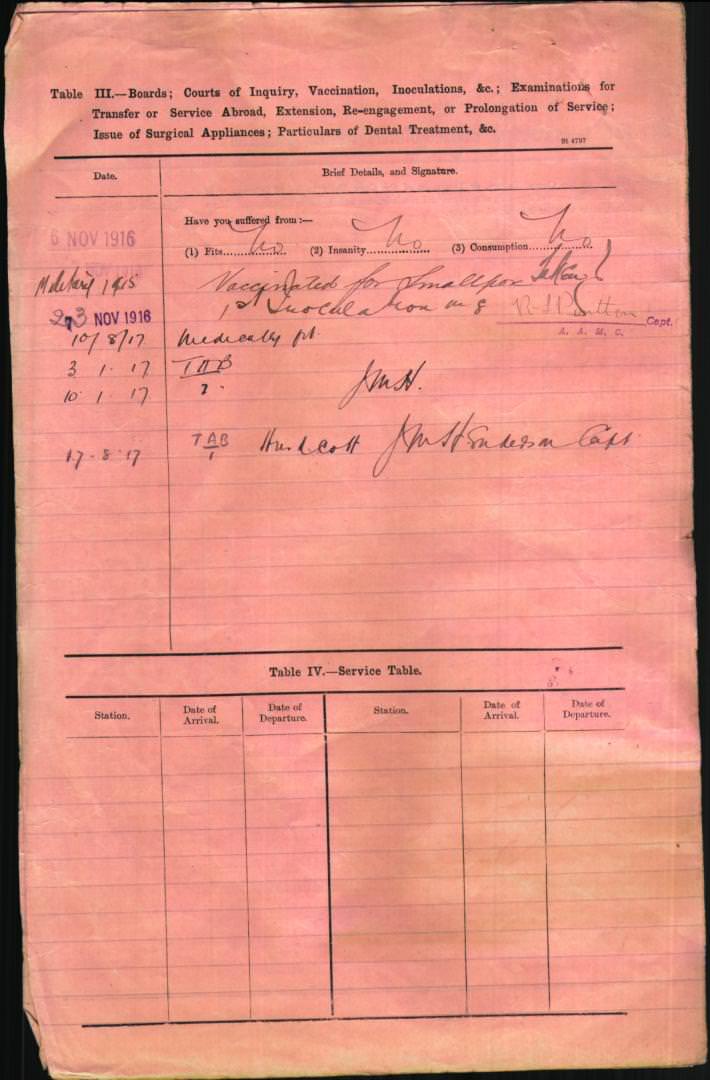 Table III.—Boards; Courts of Inquiry, Vaccination, Inoculations, &c.; Examinations for
Transfer or Service Abroad, Extension, Re-engagement, or Prolongation of Service;
Issue of Surgical Appliances; Particulars of Dental Treatment, &c.
St 4797
Date. Brief Details, and Signature.
Have you suffered from:—
6 NOV 1916
(1) Fits No (2) Insanity No (3) Consumption No
1915 Vaccinated for Smallpox
23 NOV 1916 1st Inoculation Capt.
A. A. M. C.
10/8/17 Medically fit
3 1 17 TAB
10 1 17 2 JMH.
17-8-17 TAB 1 Hurdcott JMHenderson Capt
Table IV.—Service Table.
Station. Date of Arrival. Date of Departure. Station. Date of Arrival. Date of Departure.